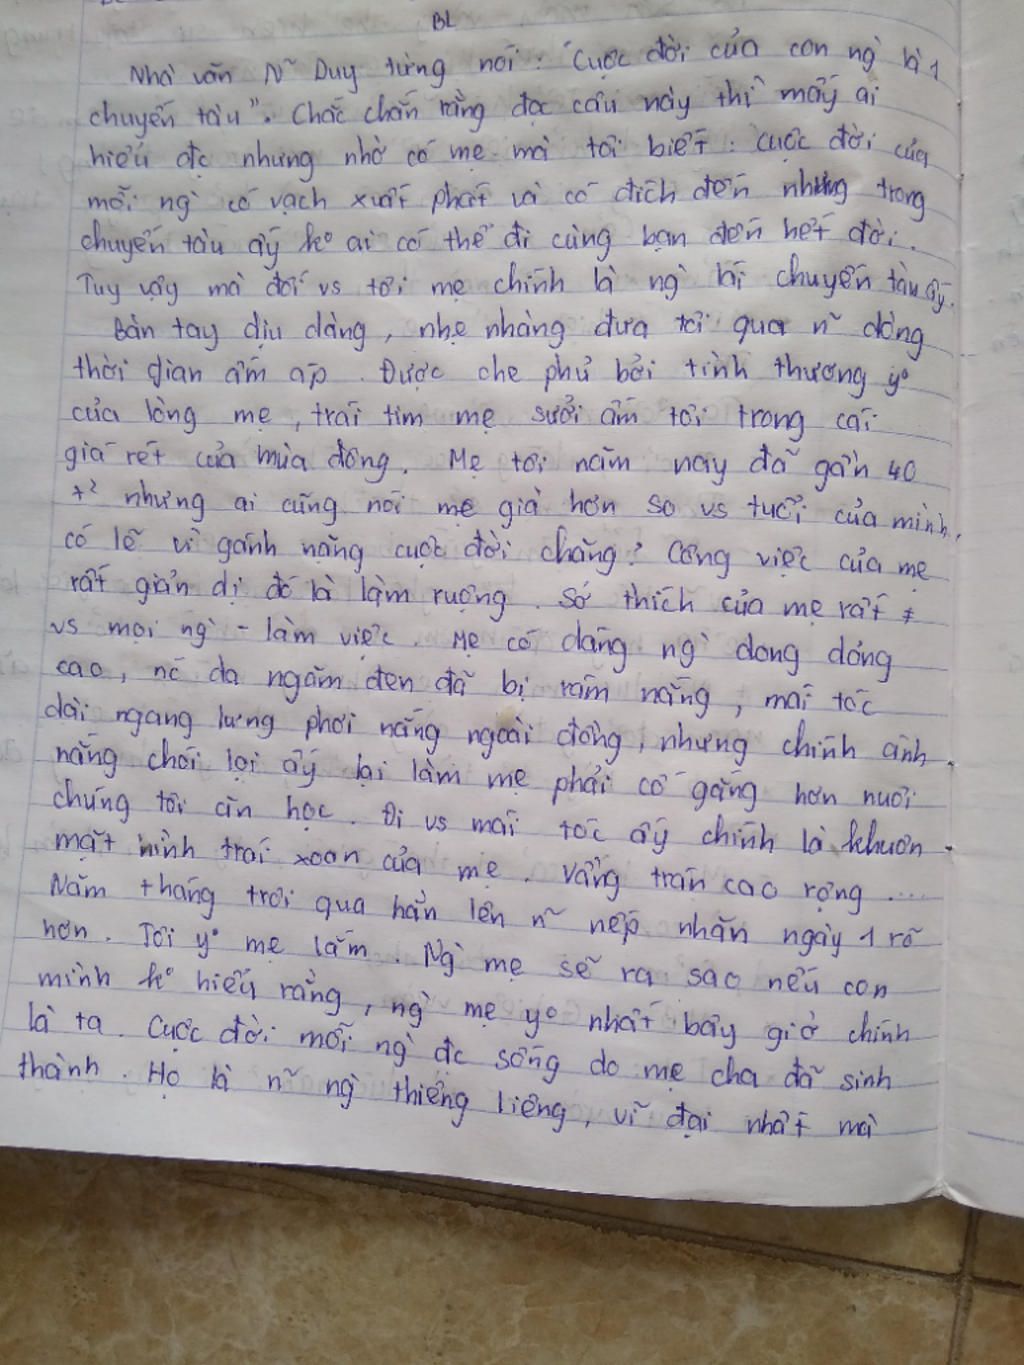 BL
Nhà văn Ng~ Duy từng nói: "Cuộc đời của con ng` là 1
chuyến tàu". Chắc chắn rằng đọc câu này thì mấy ai
hiểu đc nhưng nhờ có mẹ mà tôi biết: cuộc đời của
mỗi ng` có vạch xuất phát và có đích đến nhưng trong
chuyến tàu ấy ko ai có thể đi cùng bạn đến hết đời.
Tuy vậy mà đối vs tôi mẹ chính là ng` lái chuyến tàu ấy.
Bàn tay dịu dàng, nhẹ nhàng đưa tôi qua n~ dòng
thời gian ấm áp. Được che phủ bởi tình thương yo
của lòng mẹ, trái tim mẹ sưởi ấm tôi trong cái
giá rét của mùa đông. Mẹ tôi năm nay đã gần 40
t² nhưng ai cũng nói mẹ già hơn so vs tuổi của mình,
có lẽ vì gánh nặng cuộc đời chăng? Công việc của mẹ
rất giản dị đó là làm ruộng. Sở thích của mẹ rất ≠
vs mọi ng` - làm việc. Mẹ có dáng ng` dong dỏng
cao, nc da ngăm đen đã bị rám nắng, mái tóc
dài ngang lưng phơi nắng ngoài đồng, nhưng chính ánh
nắng chói lọi ấy lại làm mẹ phải cố gắng hơn nuôi
chúng tôi ăn học. Đi vs mái tóc ấy chính là khuôn
mặt hình trái xoan của mẹ. Vầng trán cao rộng ....
Năm tháng trôi qua hằn lên n~ nếp nhăn ngày 1 rõ
hơn. Tôi yo mẹ lắm. Ng` mẹ sẽ ra sao nếu con
mình ko hiểu rằng, ng` mẹ yo nhất bây giờ chính
là ta. Cuộc đời mỗi ng` đc sống do mẹ cha đã sinh
thành. Họ là n~ ng` thiêng liêng, vĩ đại nhất mà